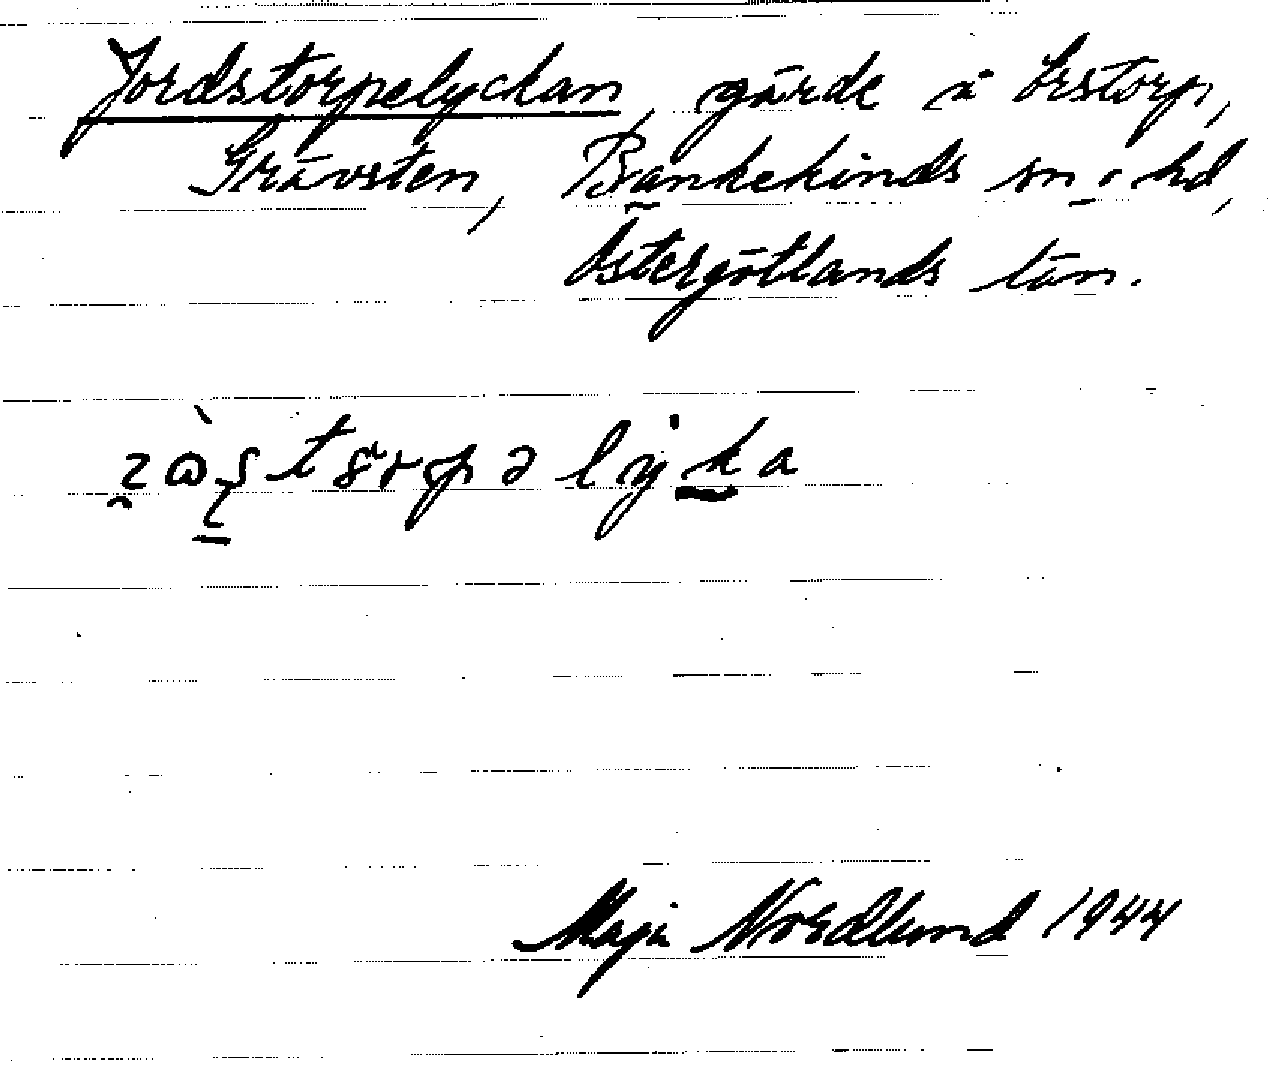 Jordstorpelyckan, gärde i Örstorp,
Grävsten, Bankekinds sn o. hd,
Östergötlands län.
Maja Nordlund 1944